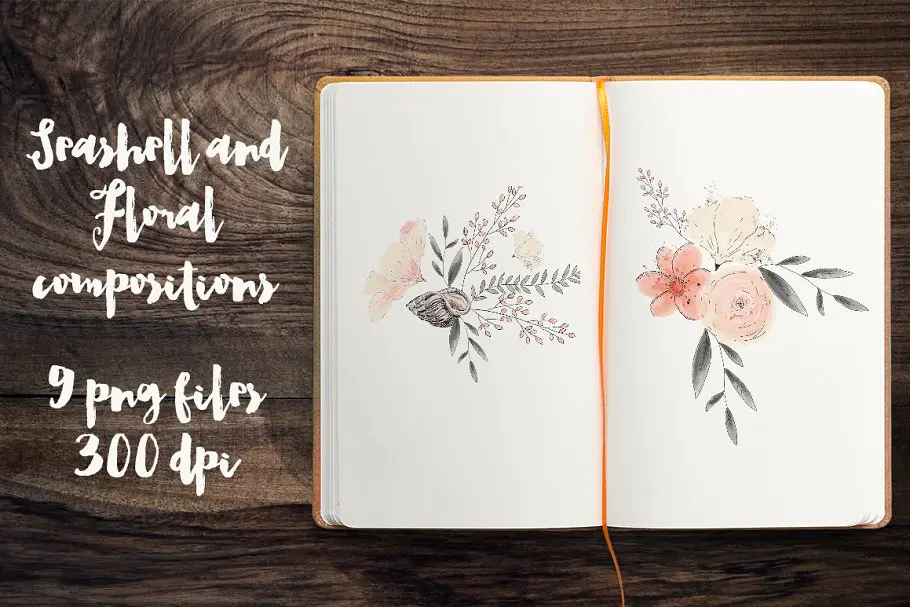 Seashell and
Floral
compositions
9 png files
300 dpi